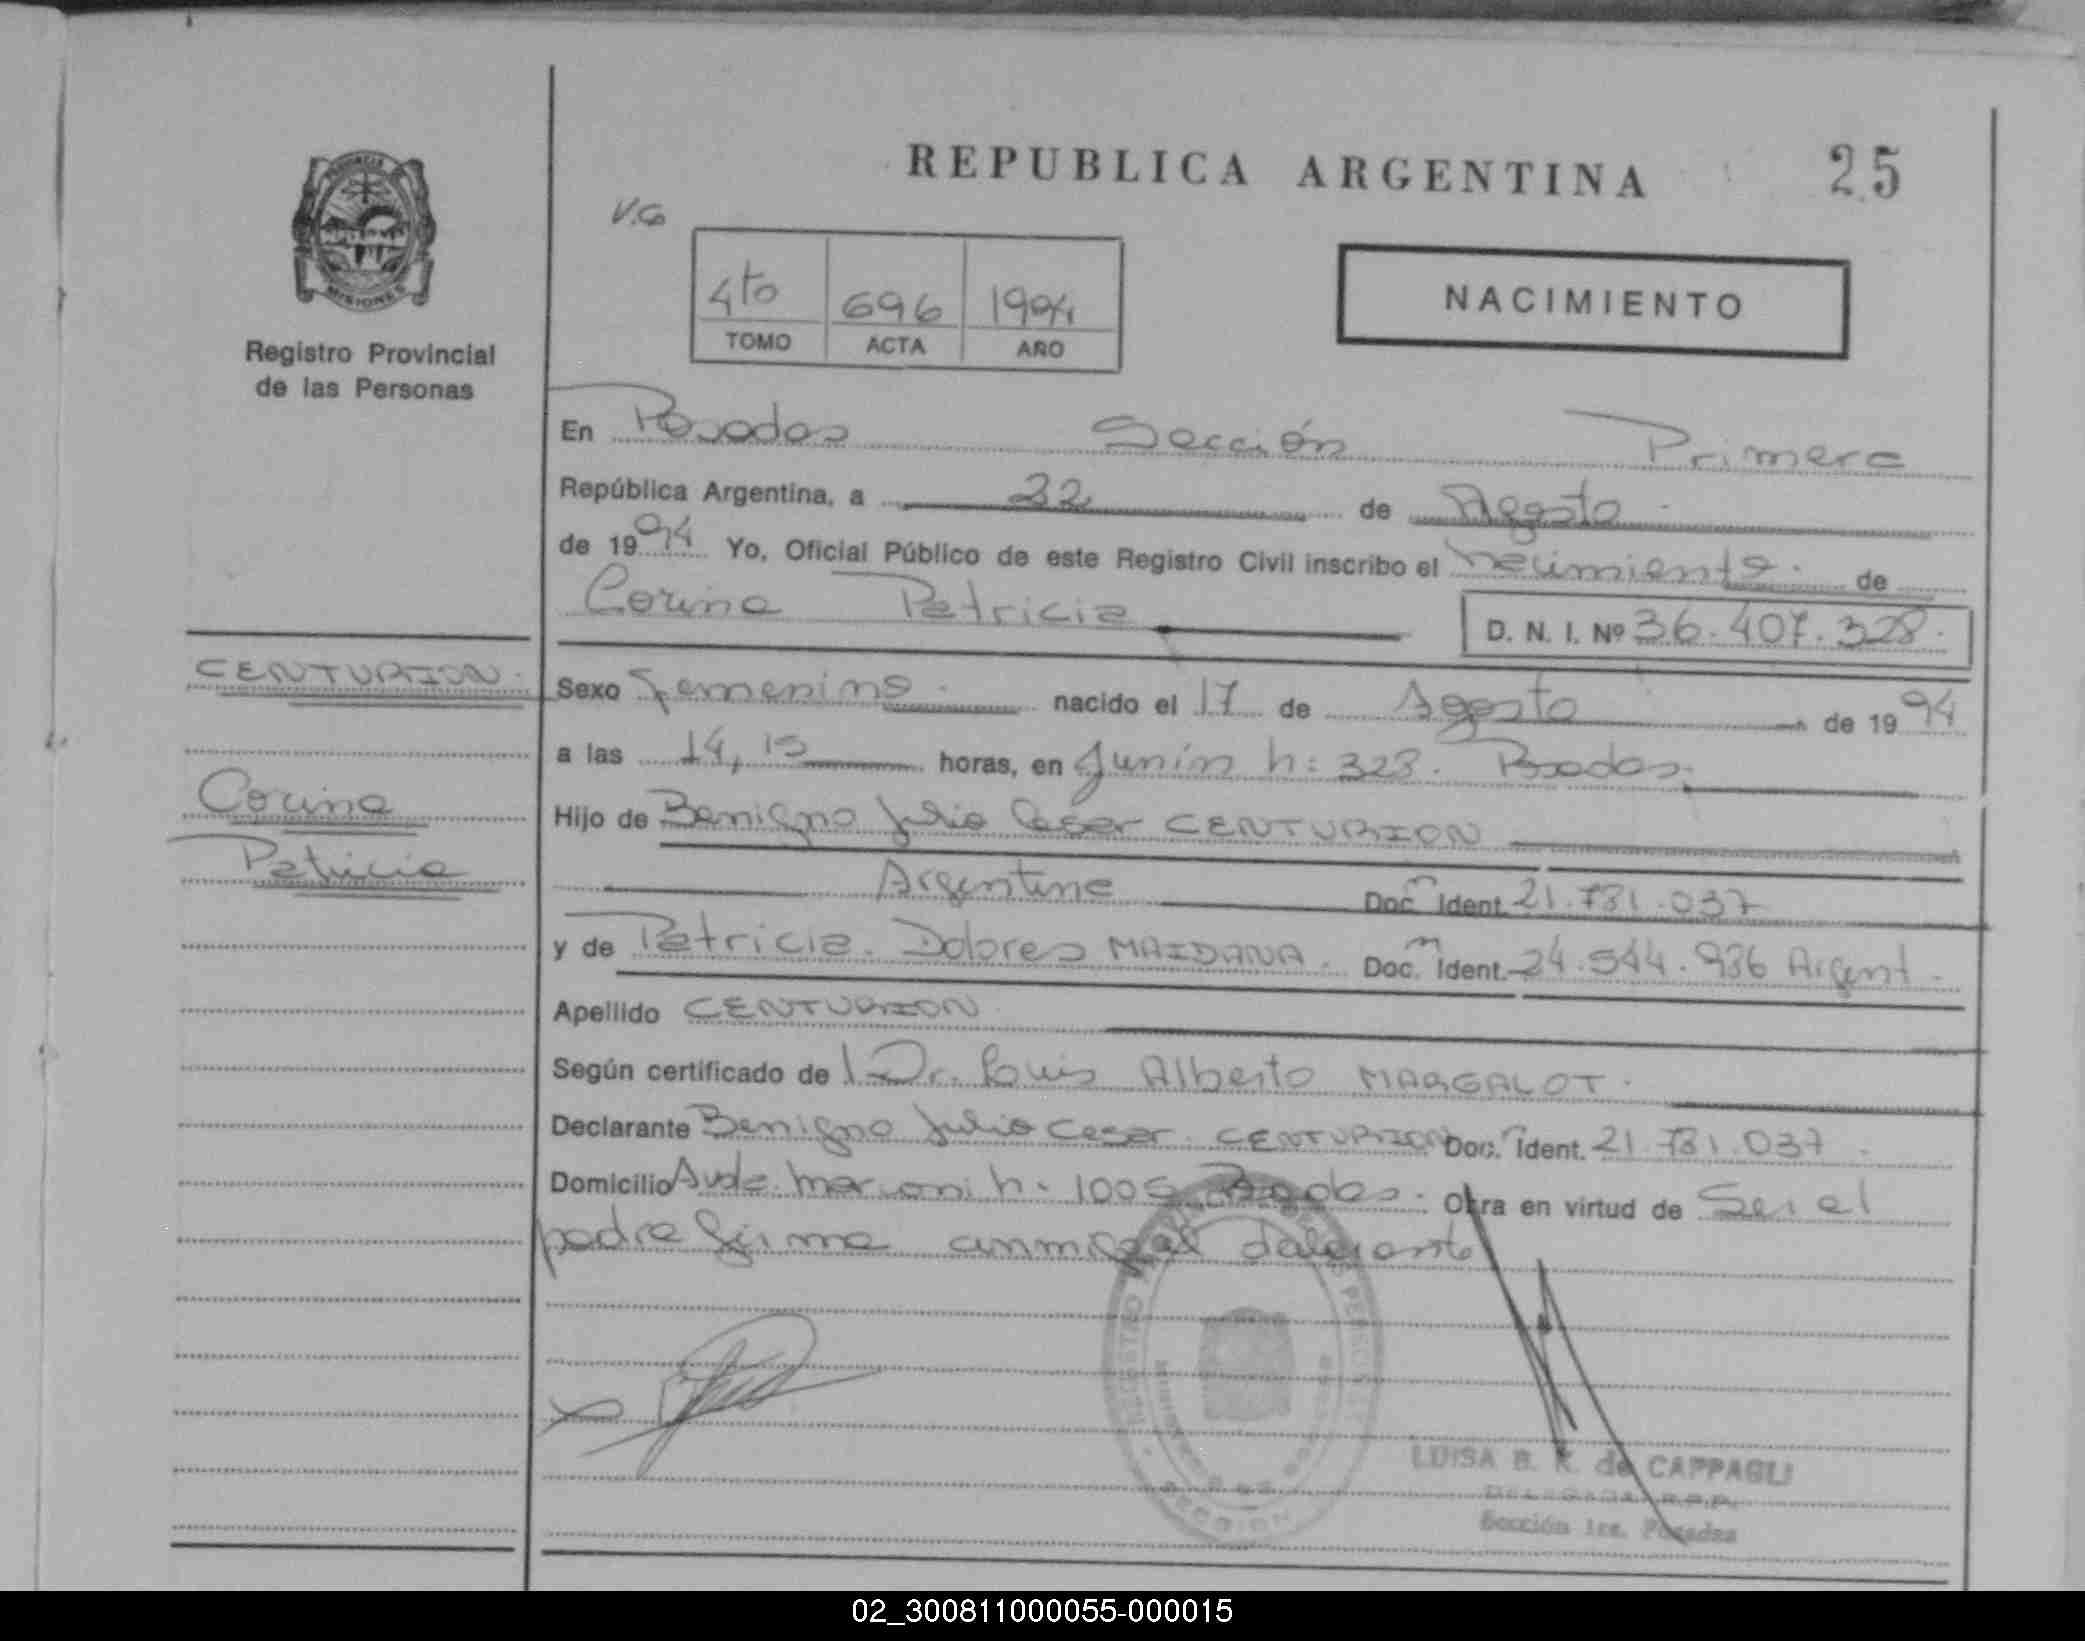 REPUBLICA ARGENTINA
25
PROVINCIA
MISIONES
Registro Provincial
de las Personas
V.G
4to 696 1994
TOMO ACTA AÑO
NACIMIENTO
En Posadas Sección Primera
República Argentina, a 22 de Agosto
de 1994 Yo, Oficial Público de este Registro Civil inscribo el nacimiento. de
Corina Patricia
D. N. I. Nº 36.407.328.
CENTURION.
Corina
Patricia
Sexo Femenino. nacido el 17 de Agosto de 1994
a las 14,15 horas, en Junín n: 323. Posadas.
Hijo de Benigno Julio Cesar CENTURION
Argentino Doc. Ident. 21.731.037
y de Patricia. Dolores MAIDANA. Doc. Ident. 24.544.936 Argent.
Apellido CENTURION
Según certificado de l Dr. Luis Alberto MARGALOT.
Declarante Benigno Julio Cesar. CENTURION Doc. Ident. 21.731.037.
Domicilio Avda. Marconi n. 1005 Posadas. Obra en virtud de Ser el
padre firma
LUISA B. K. de CAPPAGLI
DELEGADA R.P.P.
Sección 1ra. Posadas
02_300811000055-000015